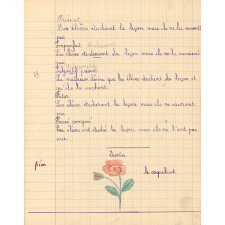 Présent
Les élèves étudient la leçon mais ils ne la savent
pas
Imparfait
Les élèves étudiaient la leçon mais ils ne la savaient
pas
Subjonctif présent
Le meilleur que les élèves étudient la leçon et
qu'ils la sachent
Futur
Les élèves étudieront la leçon mais ils ne sauront
pas
Passé composé
Les élèves ont étudié la leçon mais ils ne l'ont pas
sue
Dessin
le coquelicot